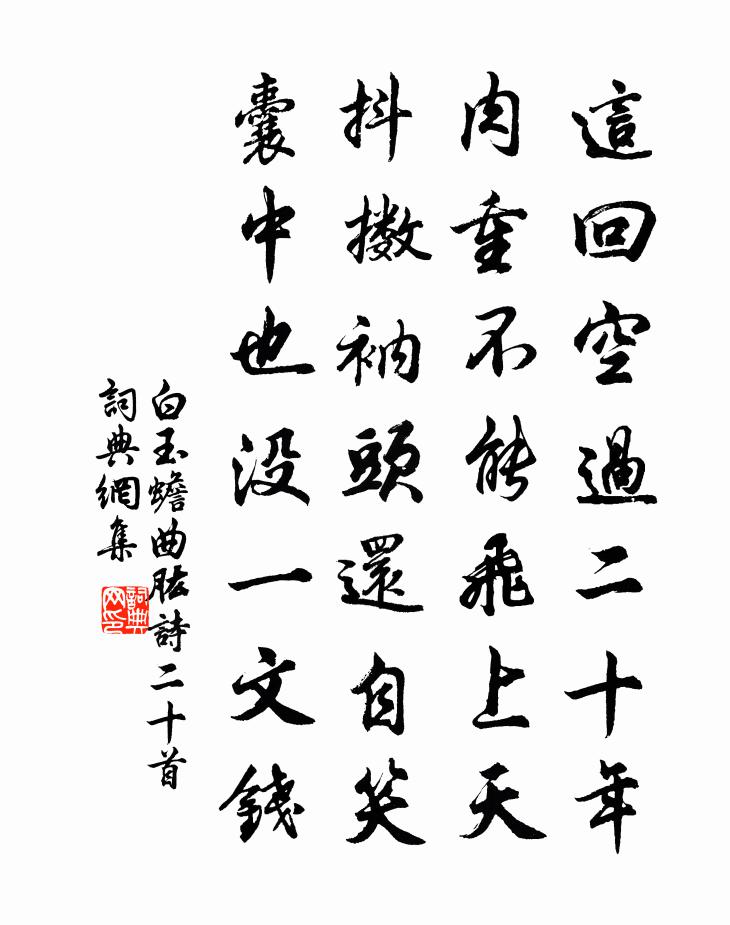 這回空過二十年
肉重不能飛上天
抖擻衲頭還自笑
囊中也没一文錢
白玉蟾曲肱詩二十首
詞典網集
詞典网印